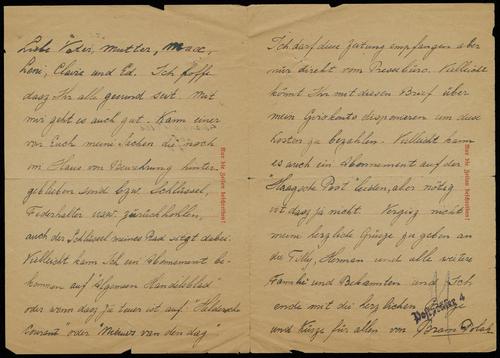 Liebe Vater, Mutter, Max,
Leni, Clavie und Ed. Ich hoffe
dasz Ihr alle gesund seit. Mit
mir geht es auch gut. Kann einer
vor Euch meine Sachen die noch
im Haus von Bewahrung hinter
geblieben sind bzw. Schlüssel,
Federhalter usw. zurückhohlen,
auch der Schlüssel meines Rad sitzt dabei.
Vielleicht kann Ich ein Abonement be-
kommen auf Algemeen Handelblad
oder wenn dasz zu teuer ist auf "Haldersche
Courant" oder "Nieuws van den dag"
Nur die Zeilen beschreiben!
Ich darf diese Zeitung empfangen aber
nur direkt vom Pressbüro. Vielleicht
könnt Ihr mit diesen Brief über
mein Girokonto disponieren um diese
kosten zu bezahlen. Vielleicht kann
es auch ein Abonnement auf der
"Haagsche Post" leiden, aber nötig
ist dasz ja nicht. Vergisz nicht
meine herzliche Grüsze zu geben an
die Tilly, Herman und alle weitere
Familie und Bekannten und Ich
ende mit die herzlichen
und Küsze für allen von Bram Polak
Nur die Zeilen beschreiben!
4